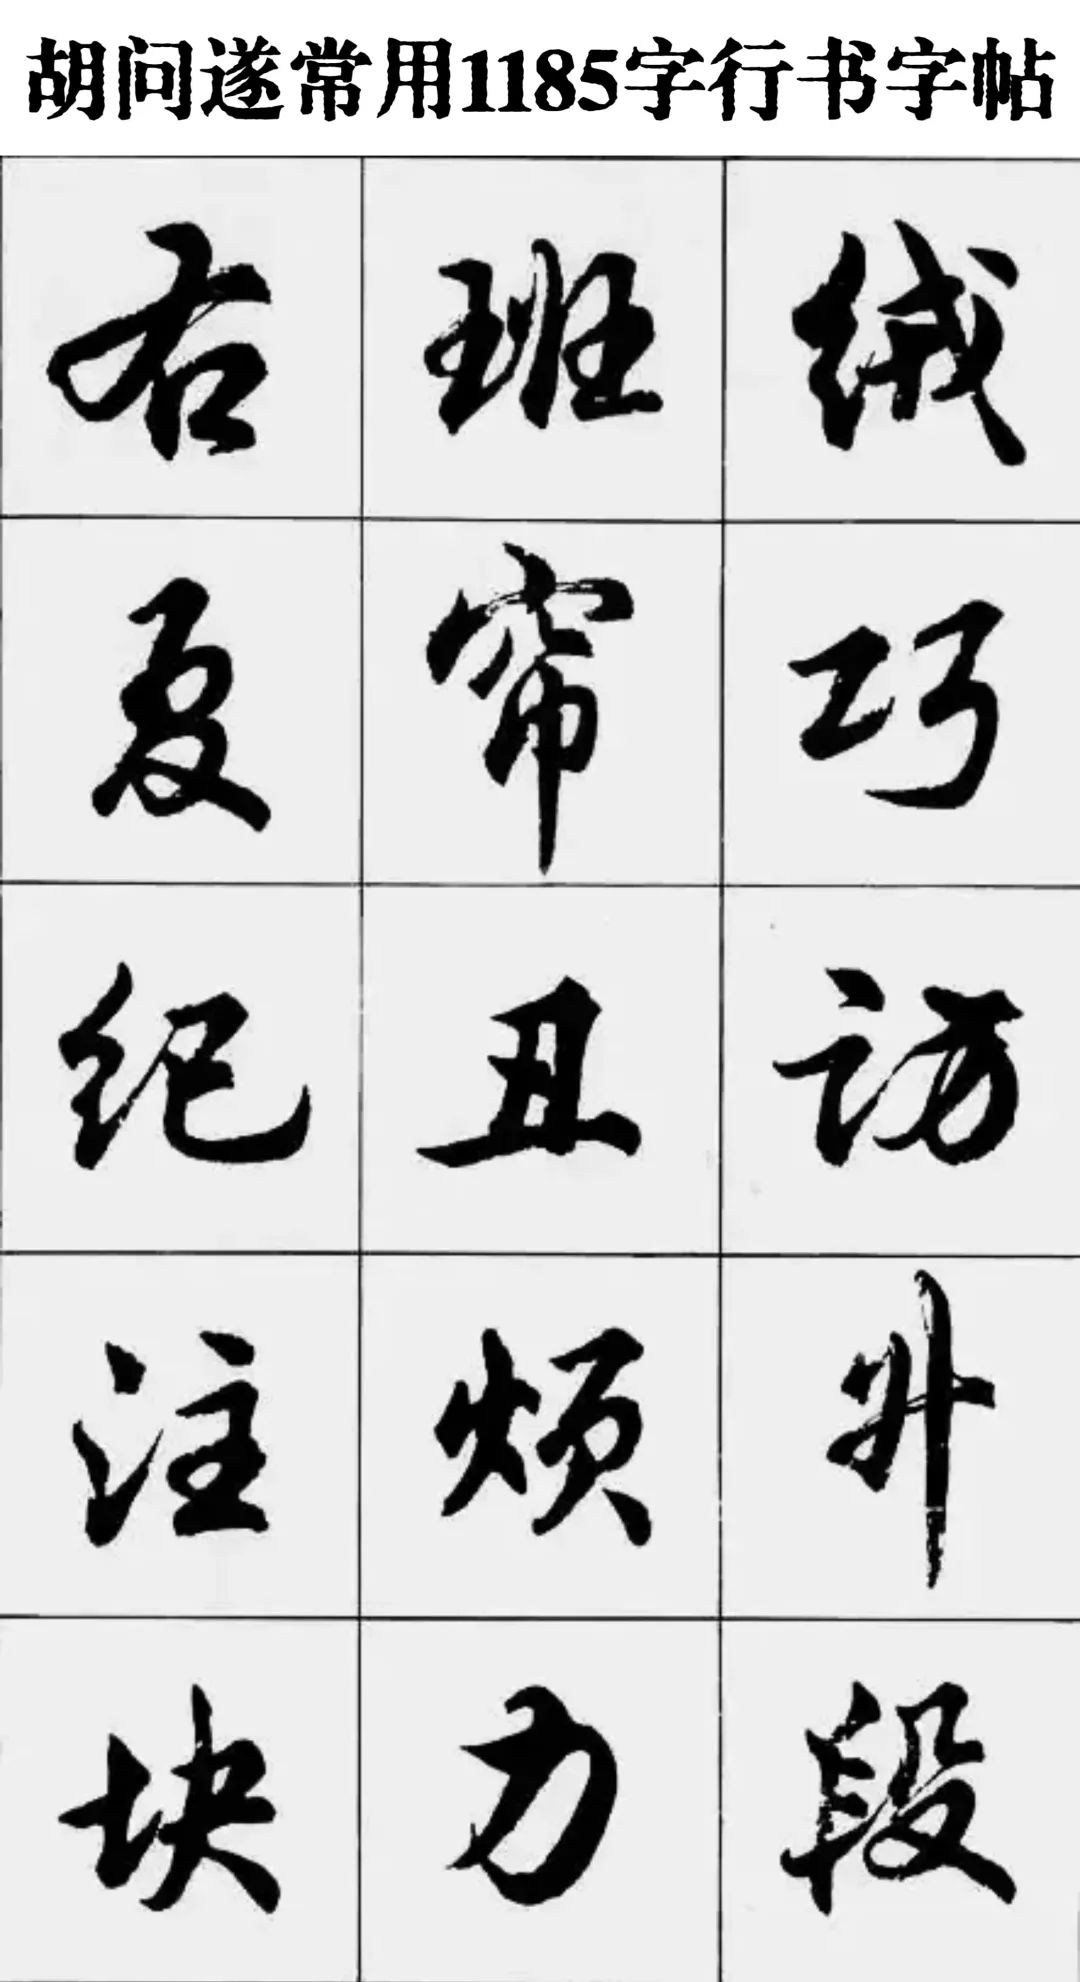 胡问遂常用1185字行书字帖
右 班 绒
夏 帘 巧
纪 丑 访
注 烦 升
块 力 段